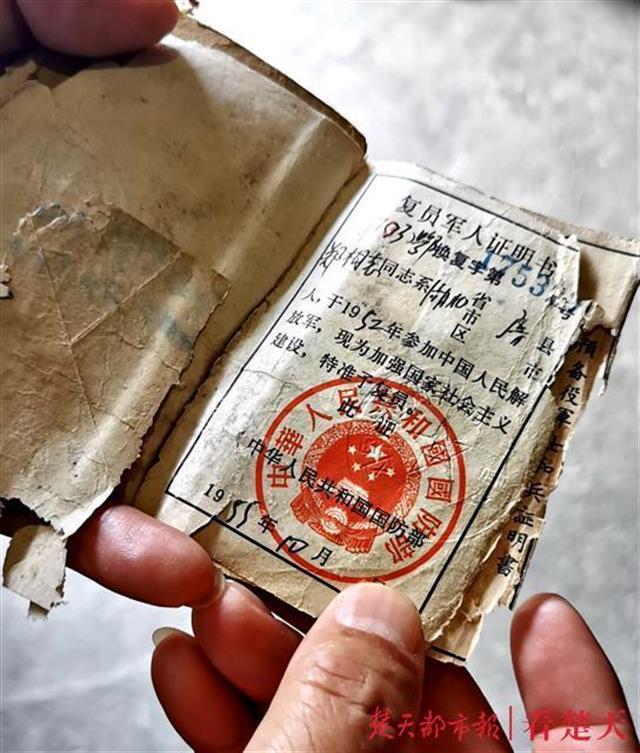 复员军人证明书
换复字第1753
同志系 省市区 县市
人,于1952年参加中国人民解
放军,现为加强国家社会主义
建设,特准予复员。
此证
中华人民共和国国防部
1955年 月
中華人民共和國國防部
預备役軍士和兵証明書
楚天都市报|看楚天